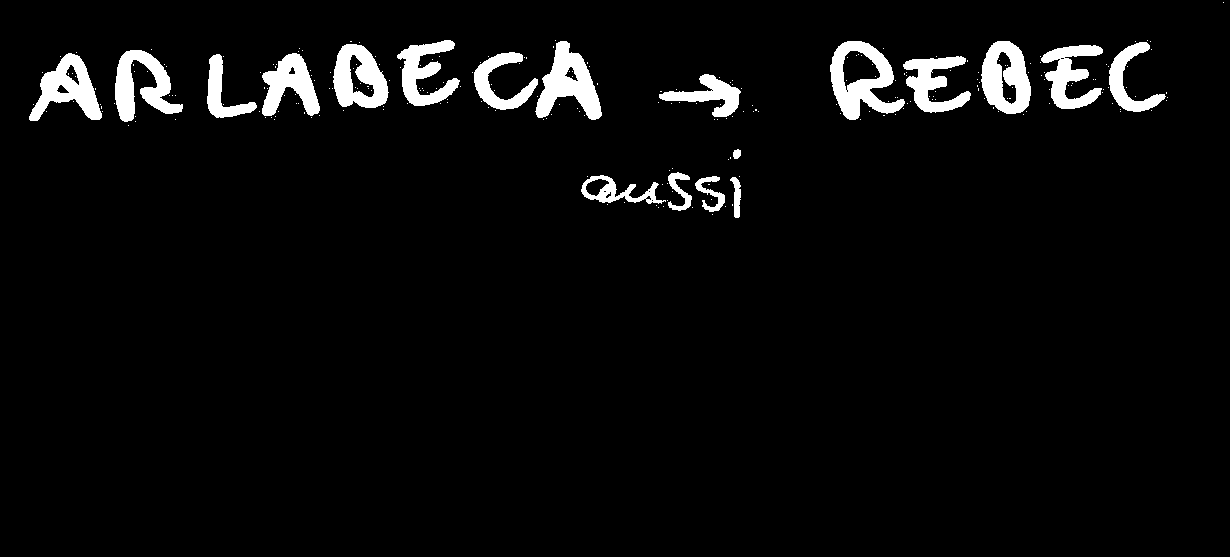 ARLABECA → REBEC
aussi